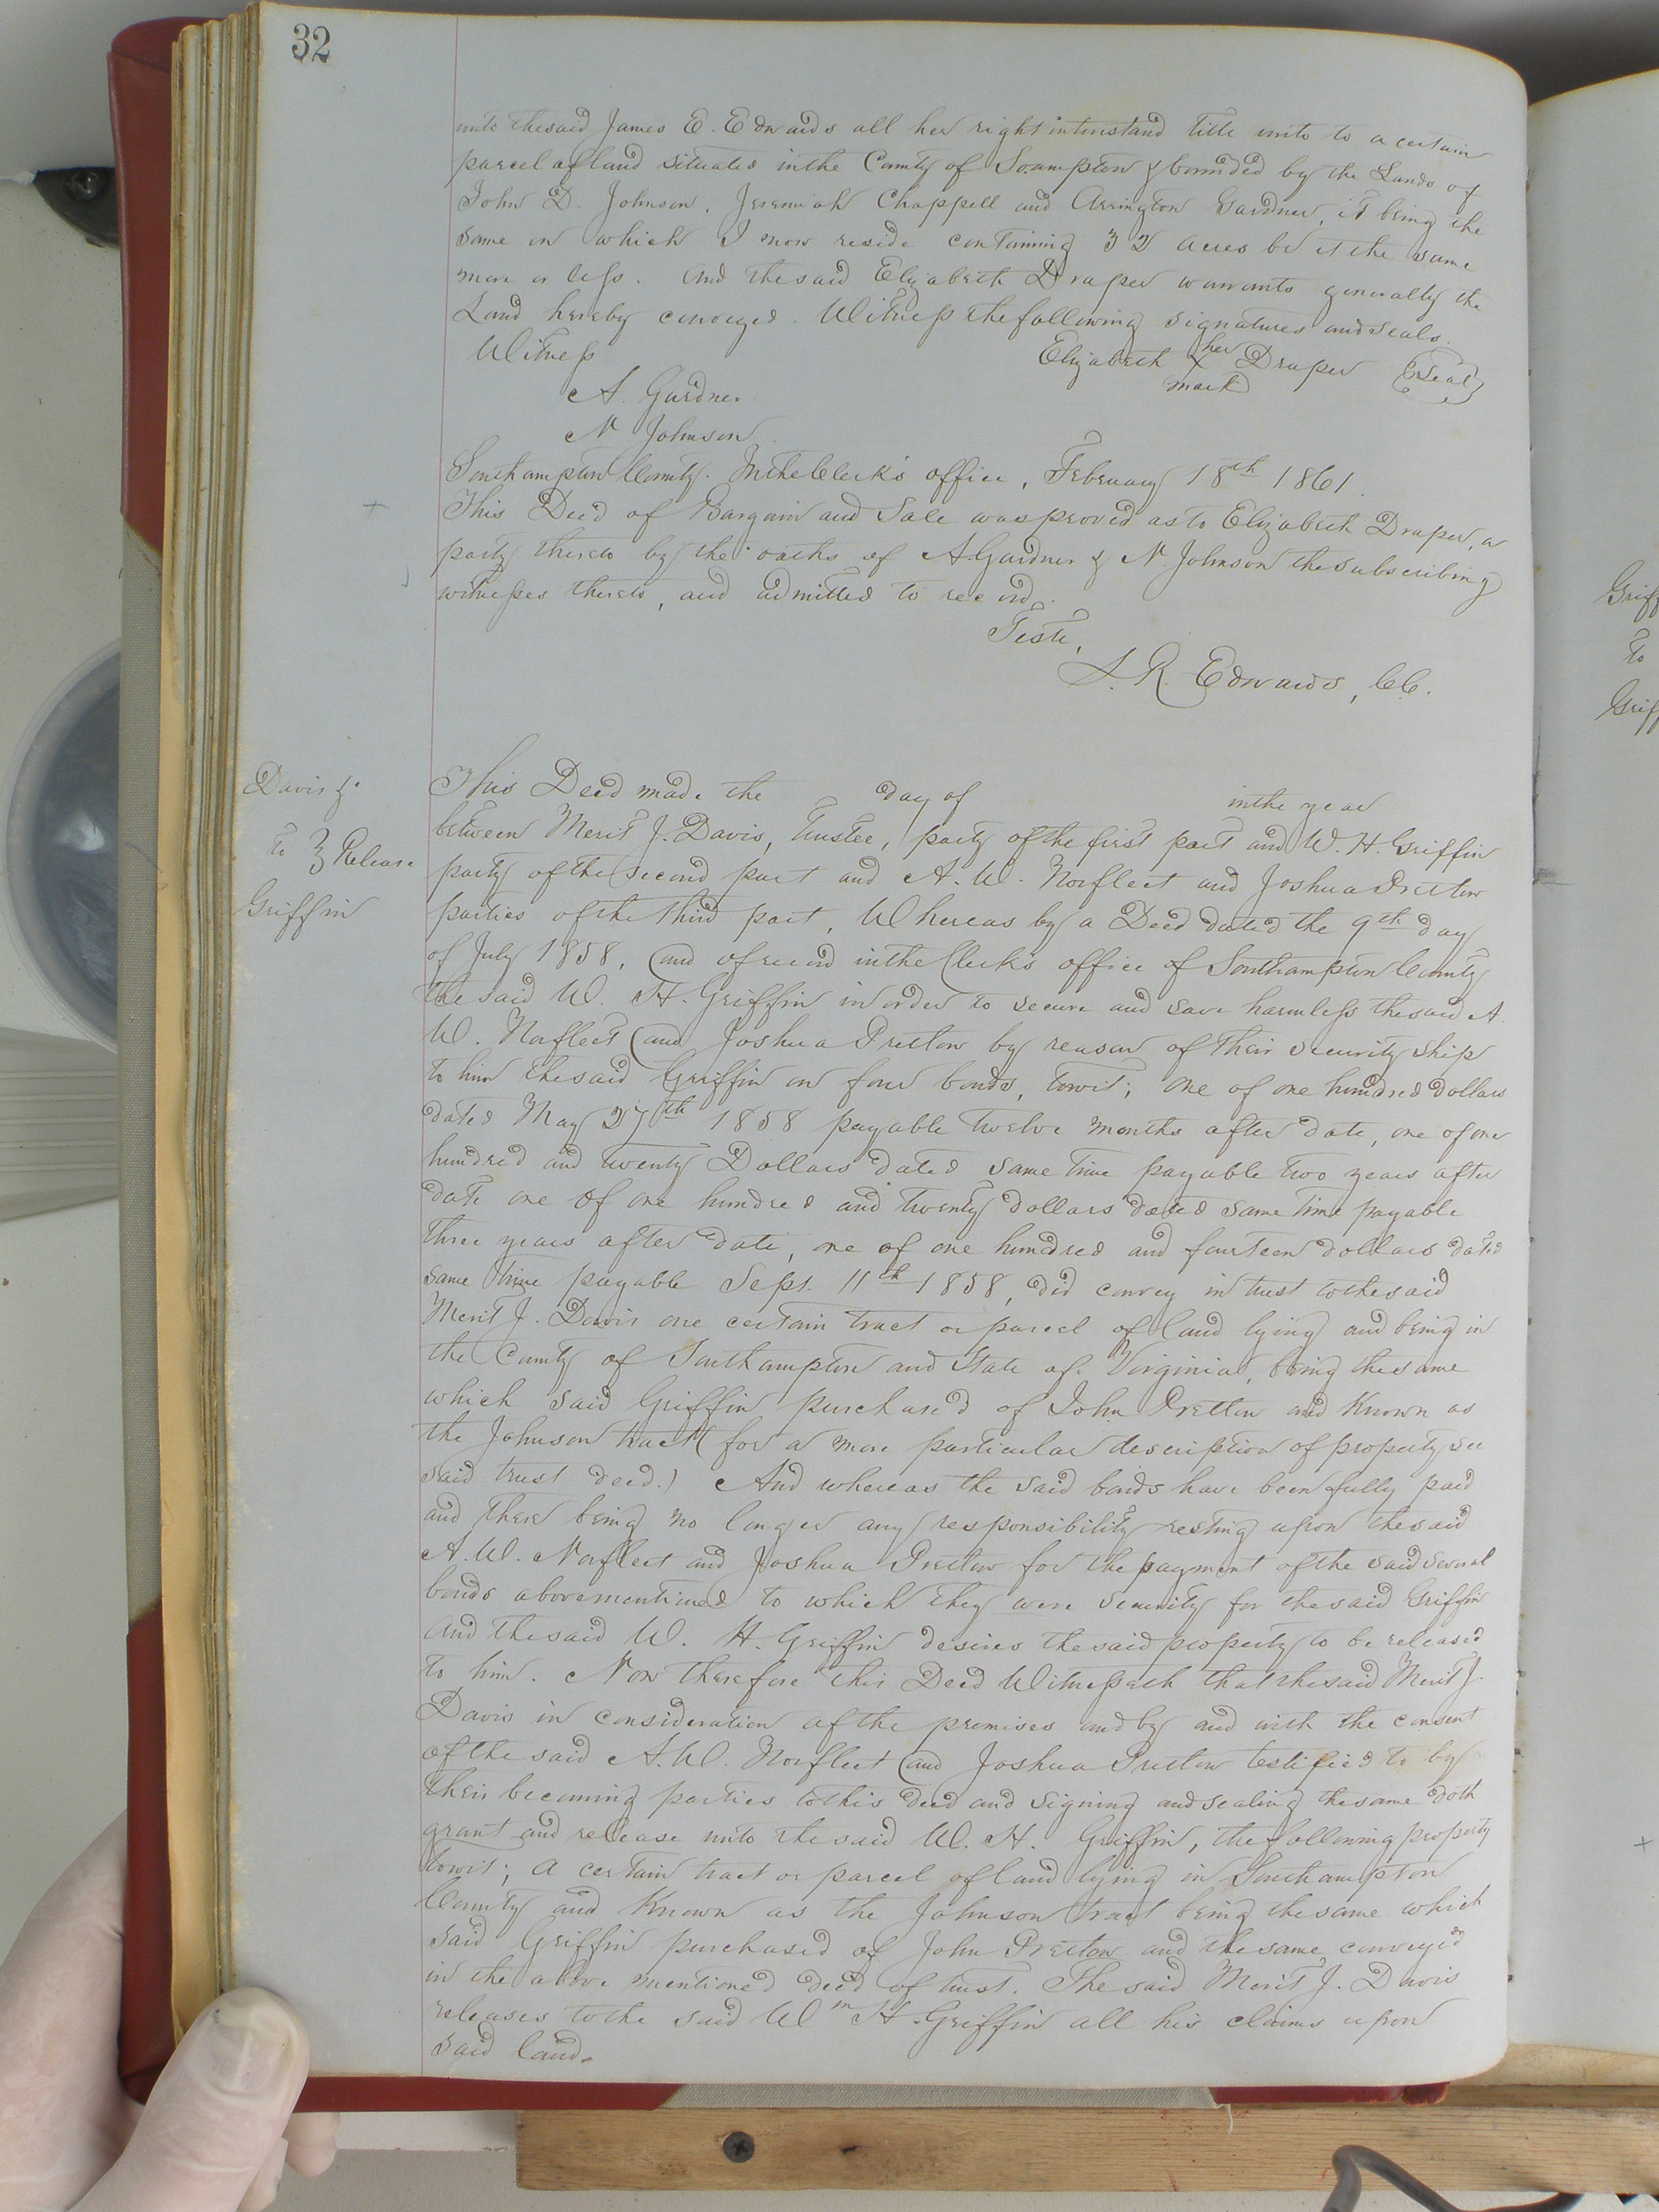 32
unto the said James E. Edwards all her right interest and title unto to a certain
parcel of land situated in the County of So.ampton & bounded by the Lands of
John D. Johnson, Jeremiah Chappell and Arrington Gardner, it being the
same on which I now reside containing 32 acres be it the same
more or less. And the said Elizabeth Draper warrants generally the
Land hereby conveyed. Witness the following signatures and seals.
Witness
Elizabeth her X mark Draper (Seal)
A. Gardner
N Johnson
Southampton County. In the Clerk's office, February 18th 1861.
This Deed of Bargain and Sale was proved as to Elizabeth Draper, a
party thereto by the oaths of A. Gardner & N. Johnson the subscribing
witnesses thereto, and admitted to record.
Teste,
L. R. Edwards, CC.
Davis &.
To } Release
Griffin
This Deed made the day of in the year
between Merit J. Davis, Trustee, party of the first part and W. H. Griffin
party of the second part and A. W. Norfleet and Joshua Pretlow
parties of the third part, Whereas by a Deed dated the 9th day
of July 1858, and of record in the Clerk's office of Southampton County
the said W. H. Griffin in order to secure and save harmless the said A.
W. Norfleet and Joshua Pretlow by reason of their security ship
to him the said Griffin on four bonds, towit; one of one hundred dollars
dated May 27th 1858 payable twelve months after date, one of one
hundred and twenty Dollars dated same time payable two years after
date one of one hundred and twenty dollars dated same time payable
three years after date, one of one hundred and fourteen dollars dated
same time payable Sept. 11th 1858, did convey in trust to the said
Merit J. Davis one certain tract or parcel of land lying and being in
the County of Southampton and State of Virginia, being the same
which said Griffin purchased of John Pretlow and Known as
the Johnson tract (for a more particular description of property see
said trust deed.) And whereas the said bonds have been fully paid
and there being no longer any responsibility resting upon the said
A. W. Norfleet and Joshua Pretlow for the payment of the said several
bonds above mentioned to which they were security for the said Griffin
and the said W. H. Griffin desires the said property to be released
to him. Now therefore this Deed Witnesseth that the said Merit J.
Davis in consideration of the premises and by and with the consent
of the said A. W. Norfleet and Joshua Pretlow testified to by
their becoming parties to this deed and signing and sealing the same doth
grant and release unto the said W. H. Griffin, the following property
towit; a certain tract or parcel of land lying in Southampton
County and Known as the Johnson tract being the same which
said Griffin purchased of John Pretlow and the same conveyed
in the above mentioned deed of trust. The said Merit J. Davis
releases to the said Wm H. Griffin all his claims upon
said land.
Griff
To
Griff